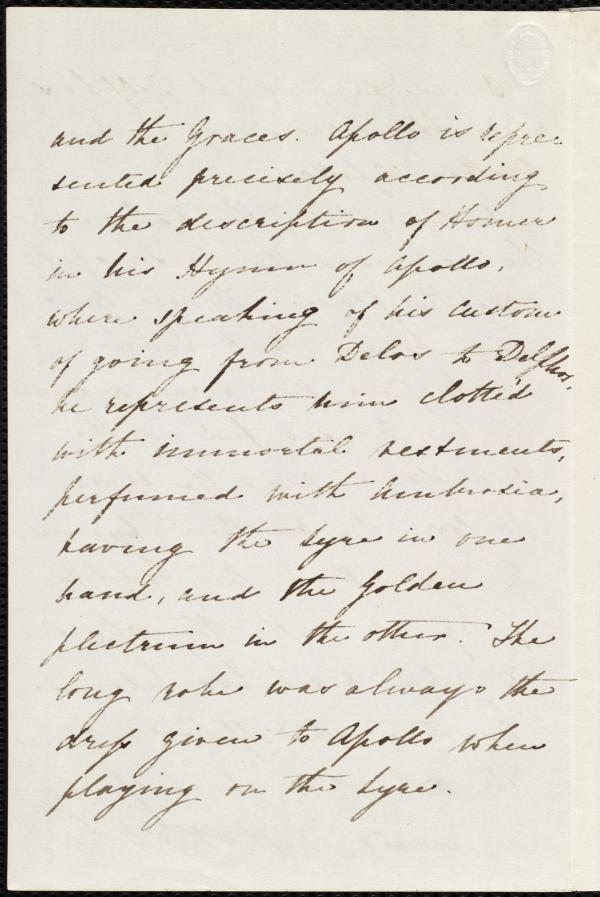 and the Graces. Apollo is repre
sented precisely according
to the description of Homer
in his Hymn of Apollo,
where speaking of his custom
of going from Delos to Delphos,
he represents him "clothed
with immortal vestments,
perfumed with Ambrosia,
having the Lyre in one
hand, and the Golden
plectrum in the other." The
long robe was always the
dress given to Apollo when
playing on the Lyre.